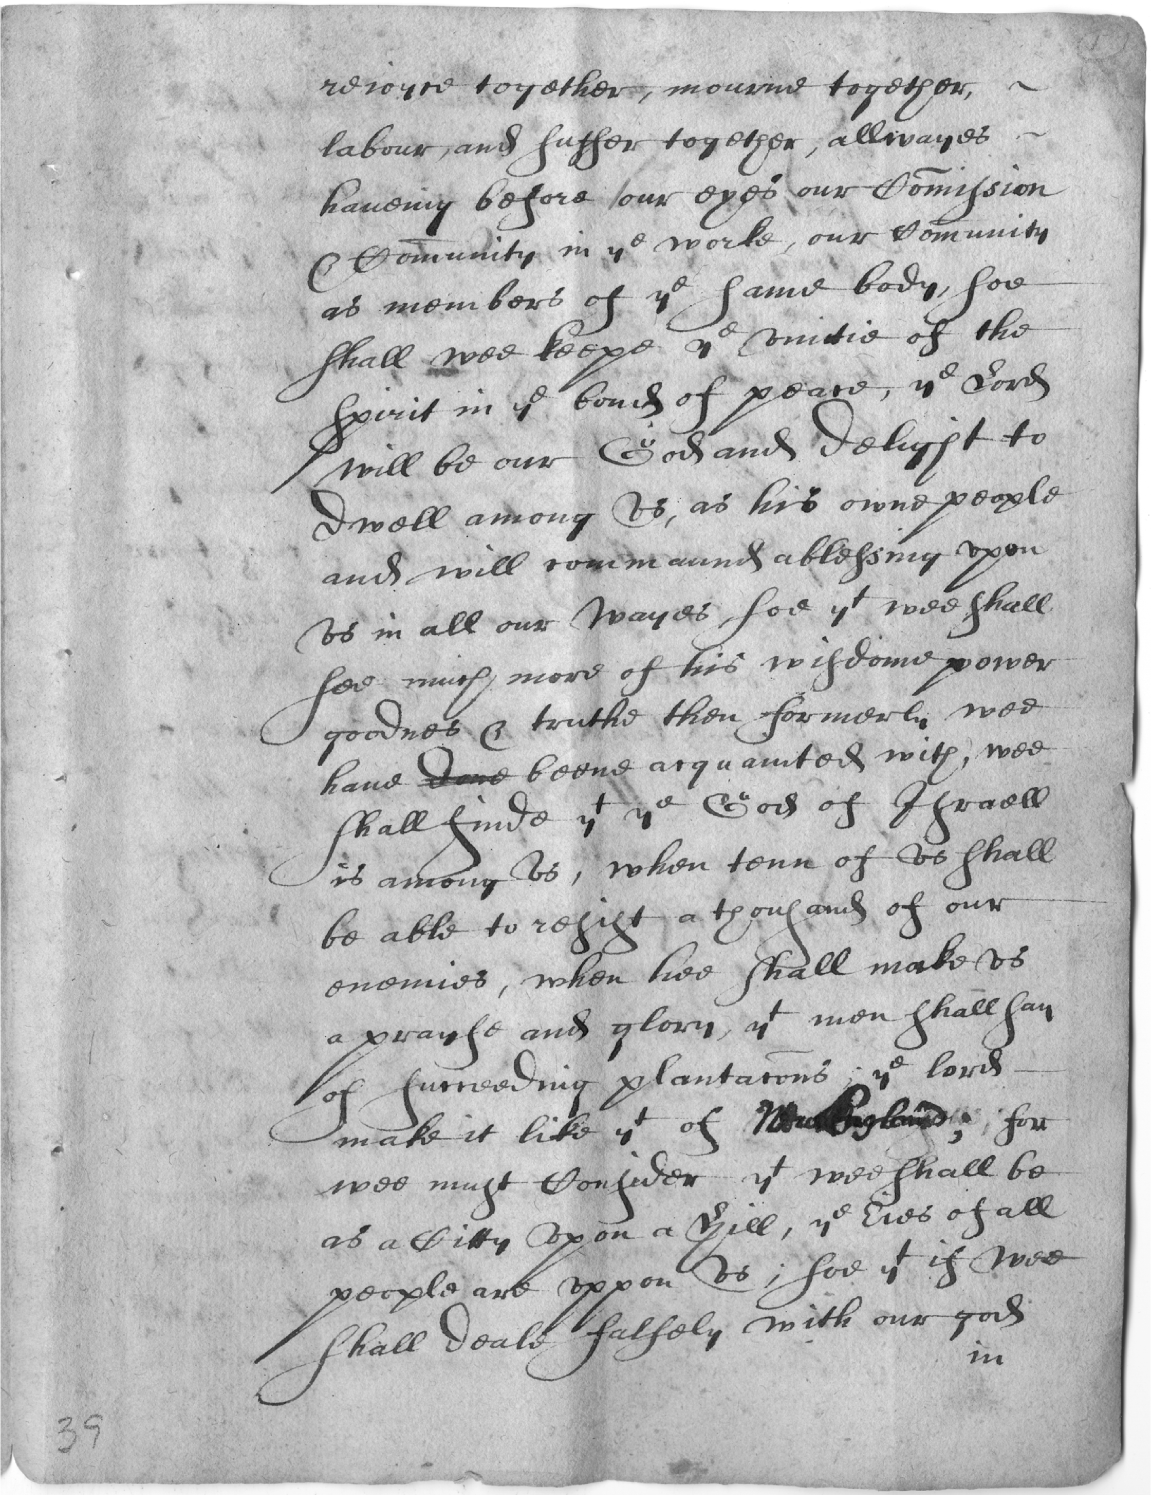 rejoyce together, mourne together, ~
labour, and suffer together, allwayes ~
haueing before our eyes our Com̄ission
& Com̄unity in yᵉ worke, our Com̄unity
as members of yᵉ same body, soe
shall wee keepe yᵉ vnitie of the
spirit in yᵉ bond of peace, yᵉ Lord
will be our God and delight to
dwell among vs, as his owne people
and will commaund a blessing vpon
vs in all our wayes, soe yᵗ wee shall
see much more of his wisdome power
goodnes & truthe then formerly wee
haue done beene acquainted with, wee
shall finde yᵗ yᵉ God of Israell
is among vs, when tenn of vs shall
be able to resist a thousand of our
enemies, when hee shall make vs
a prayse and glory, yᵗ men shall say
of succeeding plantacōns; yᵉ lord
make it like yᵗ of New England; for
wee must Consider yᵗ wee shall be
as a Citty vpon a Hill, yᵉ Eies of all
people are vppon vs; soe yᵗ if wee
shall deale falsely with our god
in
39